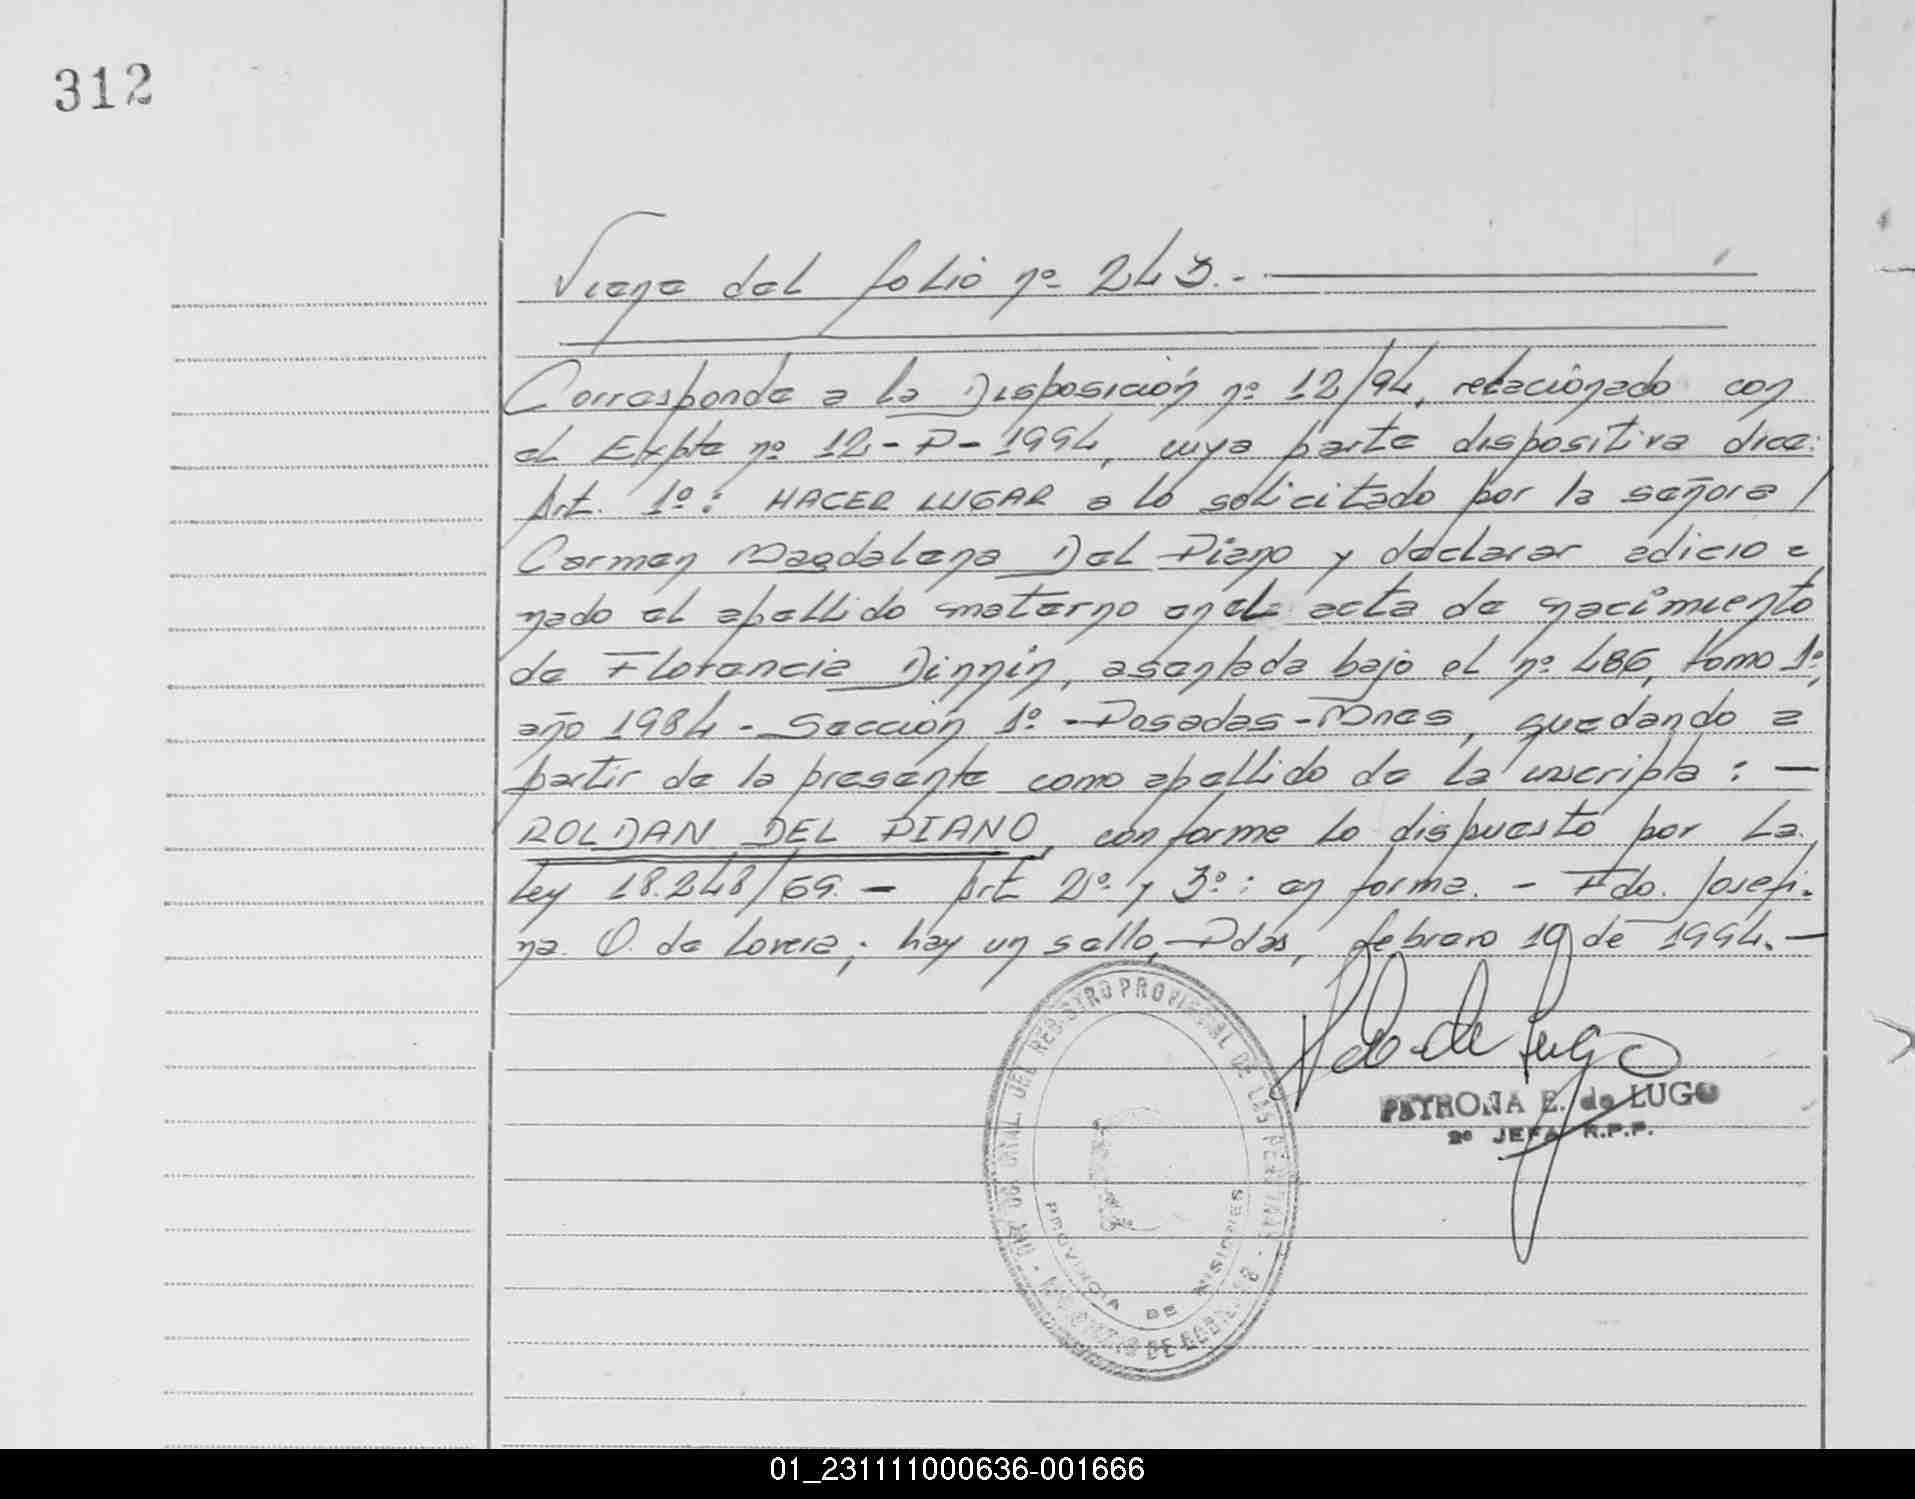 312
Viene del folio nº 243.-
Corresponde a la Disposición nº 12/94, relacionado con
el Expte nº 12-P-1994, cuya parte dispositiva dice:
Art. 1º: HACER LUGAR a lo solicitado por la señora /
Carmen Magdalena Del Piano y declarar adicio=
nado el apellido materno en el acta de nacimiento
de Florencia asentada bajo el nº 486, tomo 1º,
año 1984 - Sección 1º - Posadas - Mnes, quedando a
partir de la presente como apellido de la inscripta: —
ROLDAN DEL PIANO, conforme lo dispuesto por la
ley 18.248/69. - Art 2º y 3º: en forma. - Fdo. Josefi-
na. O. de Lovera; hay un sello, Pdas, febrero 10 de 1994. —
DEL REGISTRO PROVINCIAL DE LAS PERSONAS - MINISTERIO DE GOBIERNO
PROVINCIA DE MISIONES
de Lugo
PETRONA E. de LUGO
2º JEFA R.P.P.
01_231111000636-001666